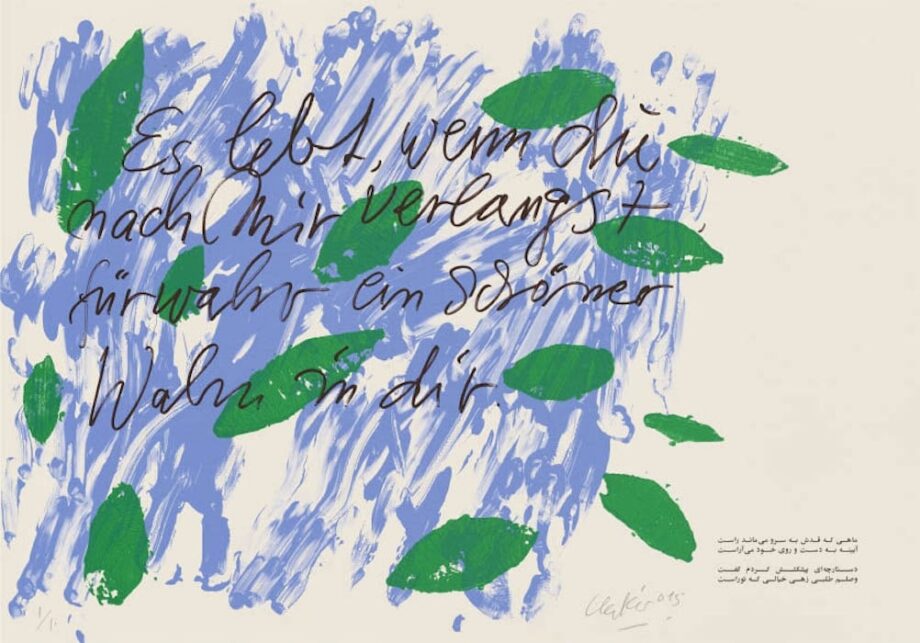 Es lebt, wenn du
nach mir verlangst,
fürwahr ein schöner
Wahn in dir.
ماهی که قدش به سرو می‌ماند راست
آیینه به دست و روی خود می‌آراست
دستارچه‌ای پیشکشش کردم گفت
وصلم طلبی زهی خیالی که توراست